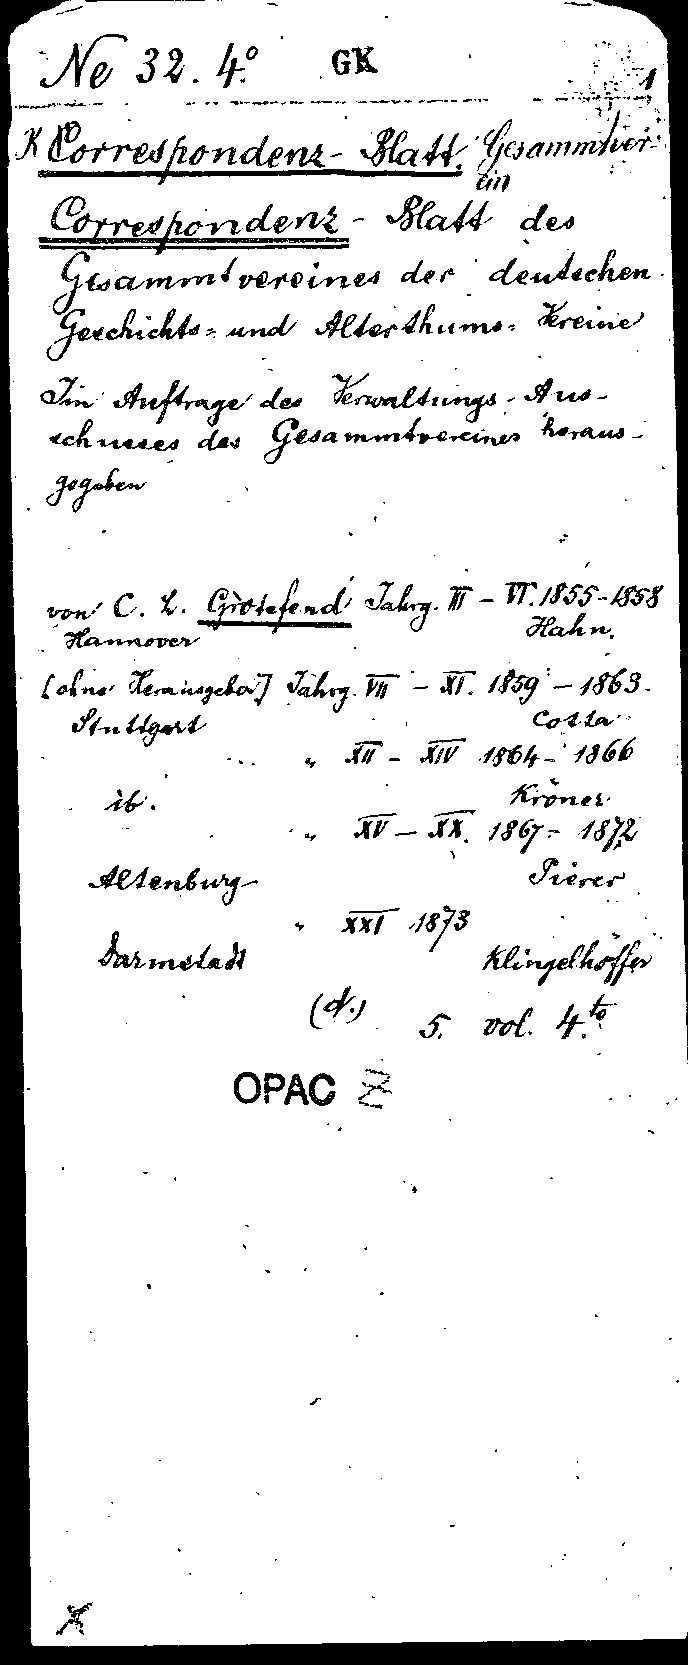 Ne 32. 4.° GK 1
K Correspondenz-Blatt. Gesammtver-
ein
Correspondenz-Blatt des
Gesammtvereines der deutschen
Geschichts= und Alterthums= Vereine
Im Auftrage des Verwaltungs-Aus-
schusses des Gesammtvereines heraus-
gegeben
von C. L. Grotefend Jahrg. III – VI. 1855-1858
Hannover Hahn.
[ohne Herausgeber] Jahrg. VII – XI. 1859 – 1863.
Stuttgart Cotta
„ XII – XIV 1864 – 1866
ib. Kröner
„ XV – XX. 1867 – 1872
Altenburg Pierer
„ XXI 1873
Darmstadt Klingelhöffer
(d.) 5. vol. 4.to
OPAC Z
X